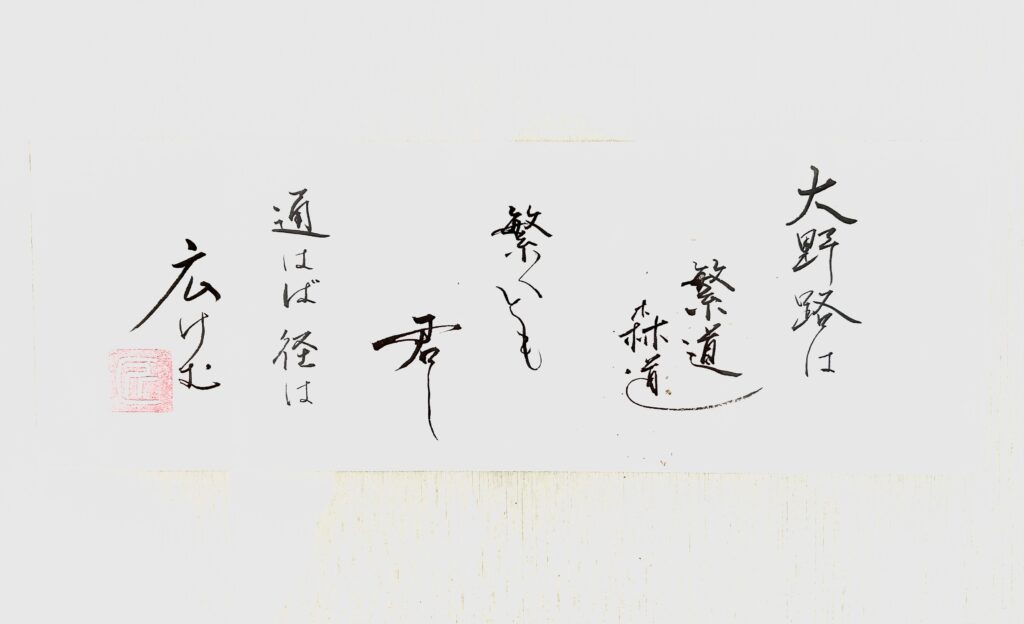 大野路は
繁道
森道
繁くとも
君し
通はば径は
広けむ